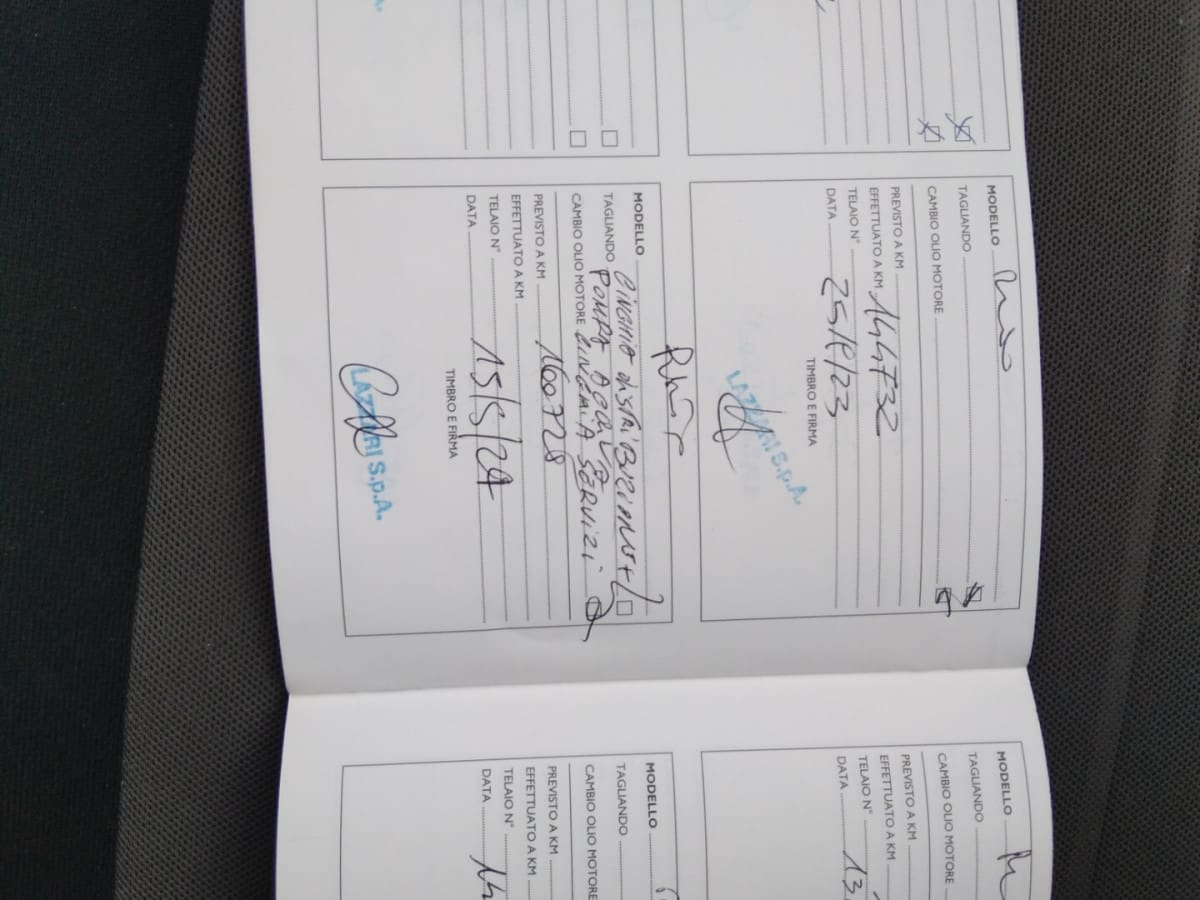 MODELLO
TAGLIANDO
CAMBIO OLIO MOTORE
PREVISTO A KM
EFFETTUATO A KM 144732
TELAIO N°
DATA 25/9/23
TIMBRO E FIRMA
LAZZARI S.p.A.
MODELLO
CINGHIA DISTRIBUZIONE +
TAGLIANDO POMPA ACQUA
CAMBIO OLIO MOTORE CINGHIA SERVIZI
PREVISTO A KM 160728
EFFETTUATO A KM
TELAIO N°
DATA 15/5/24
TIMBRO E FIRMA
LAZZARI S.p.A.
MODELLO
TAGLIANDO
CAMBIO OLIO MOTORE
PREVISTO A KM
EFFETTUATO A KM
TELAIO N°
DATA 13
MODELLO
TAGLIANDO
CAMBIO OLIO MOTORE
PREVISTO A KM
EFFETTUATO A KM
TELAIO N°
DATA 14